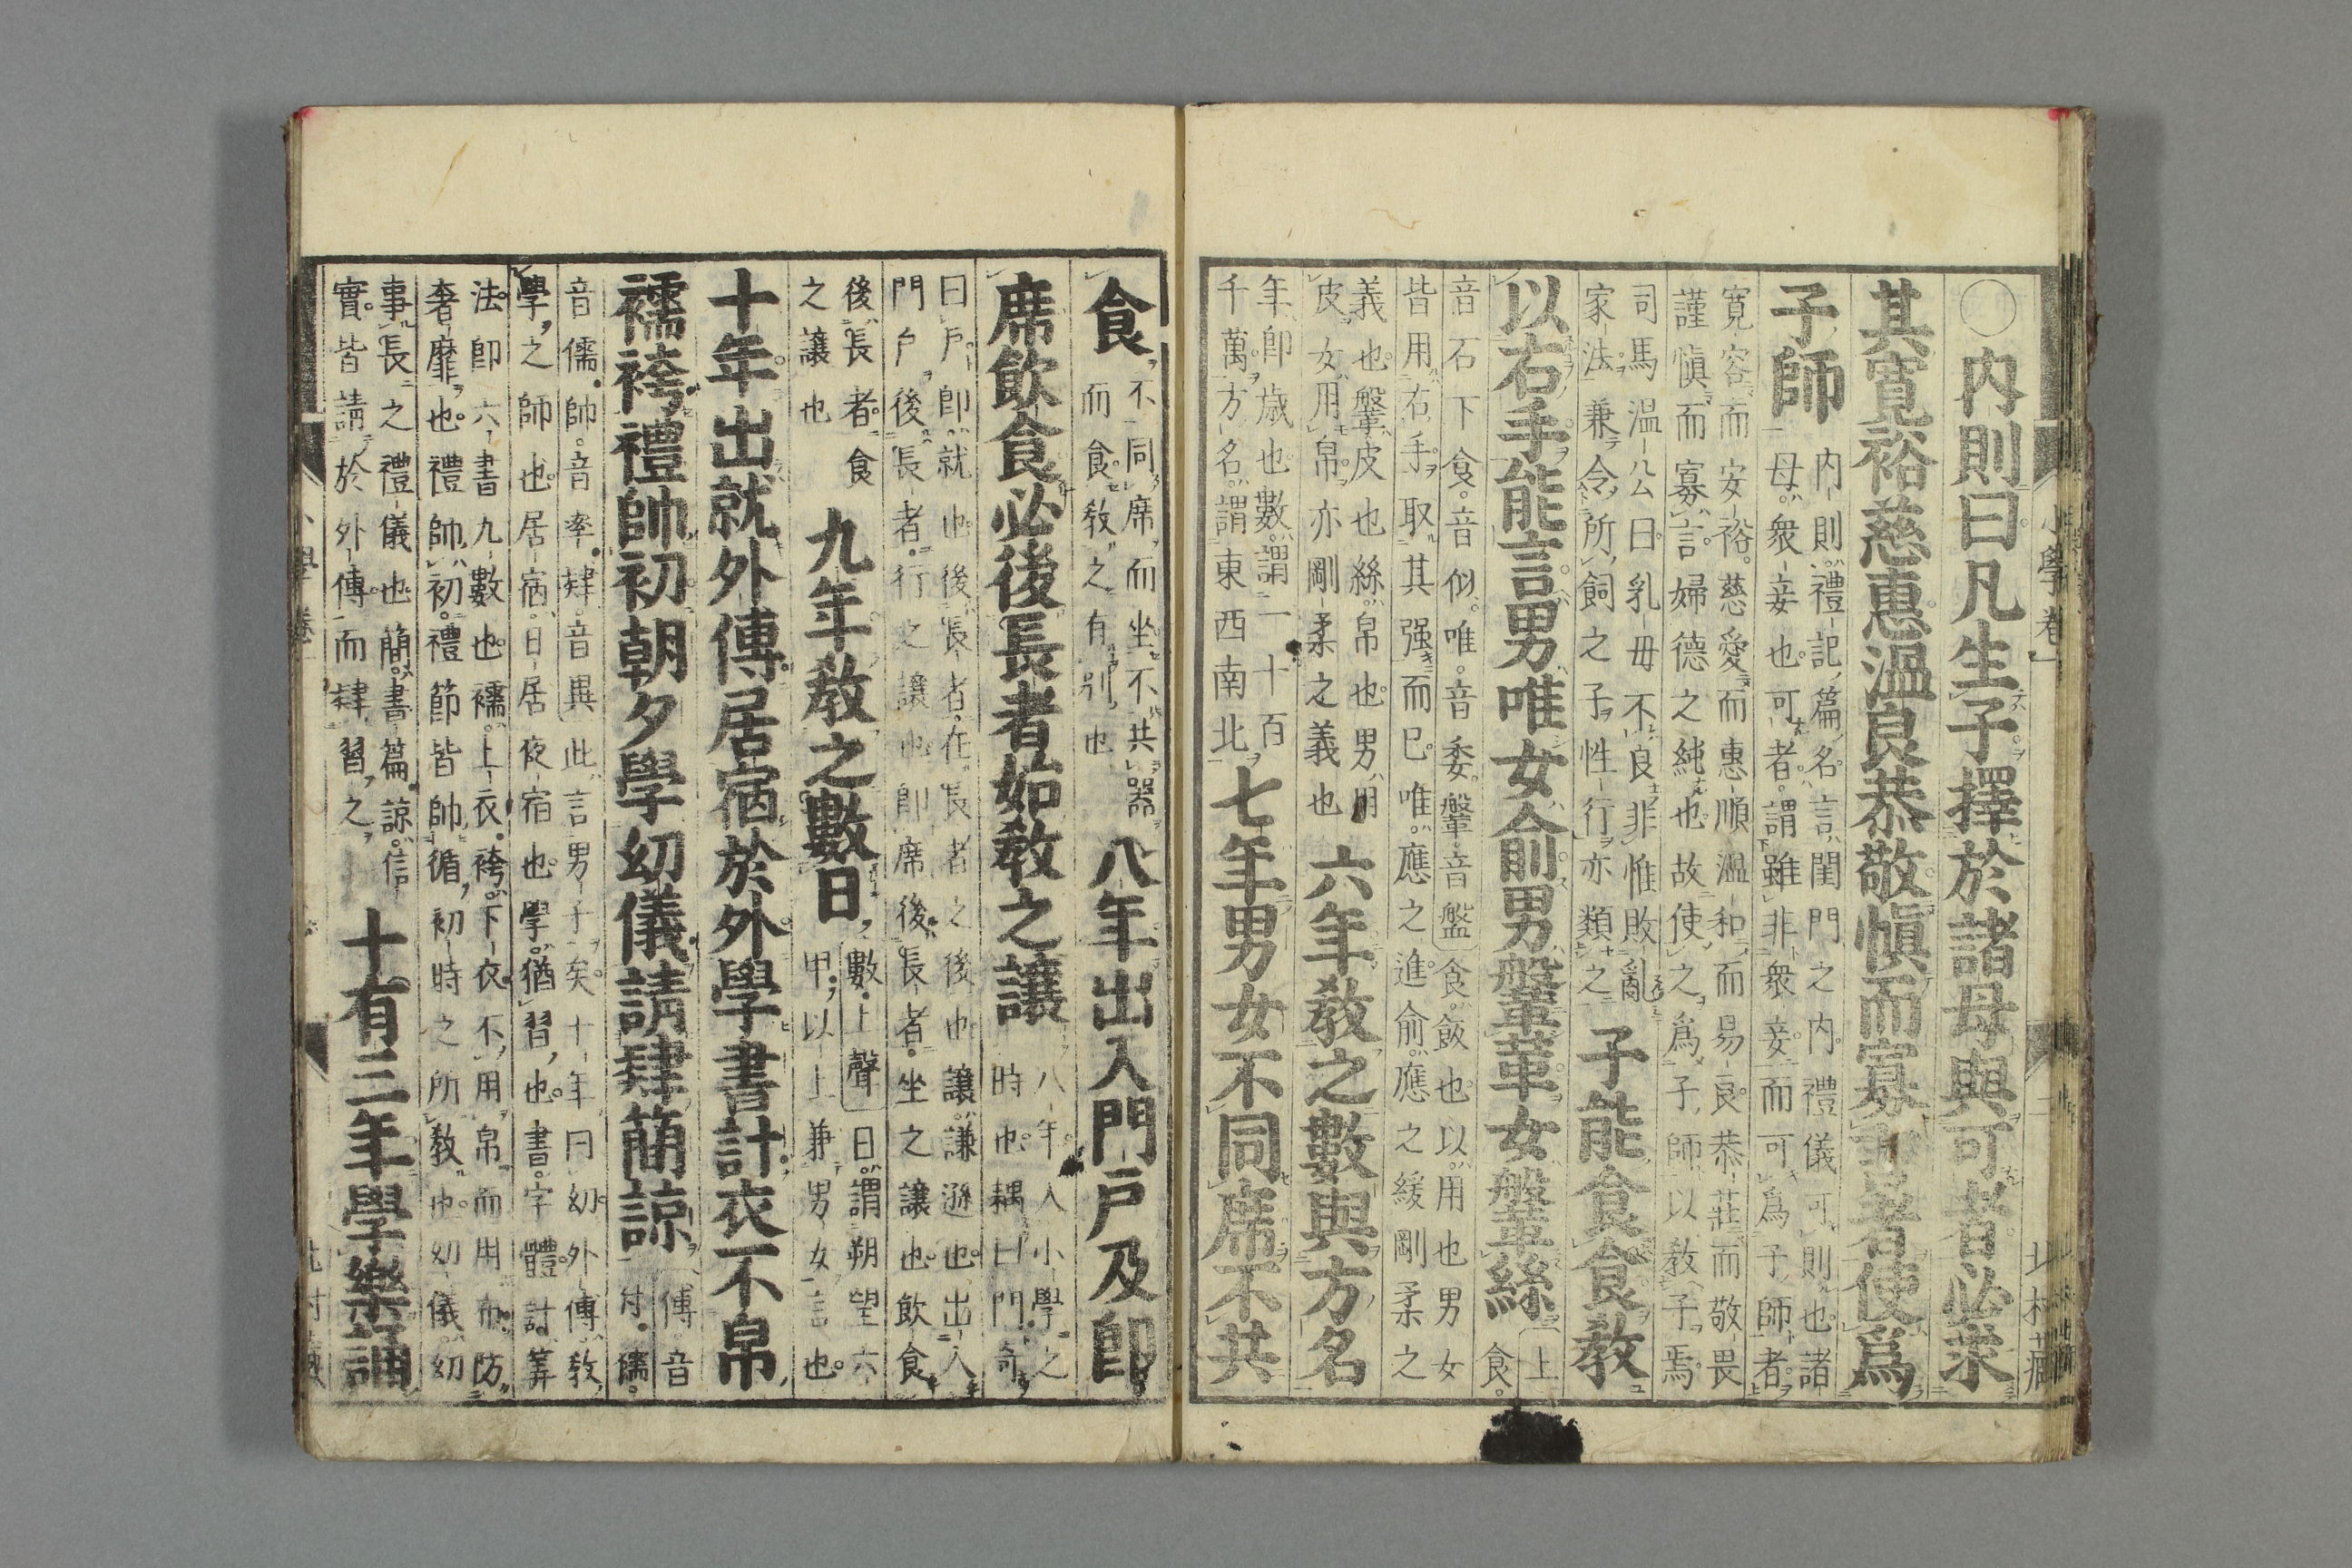 小學卷一
○內則曰凡生子擇於諸母與可者必求
其寬裕慈惠溫良恭敬愼而寡言者使爲
子師
內則禮記篇名言閨門之內禮儀可則也諸
母衆妾也可者謂雖非衆妾而可爲子師者
寬容而安裕慈愛而惠順溫和而易良恭莊而敬畏
謹愼而寡言婦德之純也故使之爲子師以敎子焉
司馬溫公曰乳母不良非惟敗亂
家法兼令所飼之子性行亦類之
子能食食敎
以右手能言男唯女俞男鞶革女鞶絲
上食
音石下食音似唯音委鞶音盤食飯也以用也男女
皆用右手取其强而已唯應之進俞應之緩剛柔之
義也鞶皮也絲帛也男用
皮女用帛亦剛柔之義也
六年敎之數與方名
年卽歲也數謂一十百
千萬方名謂東西南北
七年男女不同席不共
食
不同席而坐不共器
而食敎之有別也
八年出入門戶及卽
席飮食必後長者始敎之讓
八年入小學之
時也耦曰門奇
曰戶卽就也後長者在長者之後也讓謙遜也出入
門戶後長者行之讓也卽席後長者坐之讓也飮食
後長者食
之讓也
九年敎之數日
數上聲日謂朔望六
甲以上兼男女言也
十年出就外傅居宿於外學書計衣不帛
襦袴禮帥初朝夕學幼儀請肄簡諒
傅音
付襦
音儒帥音率肄音異此言男子矣十年曰幼外傅敎
學之師也居宿日居夜宿也學猶習也書字體計筭
法卽六書九數也襦上衣袴下衣不用帛而用布防
奢靡也禮帥初禮節皆帥循初時之所敎也幼儀幼
事長之禮儀也簡書篇諒信
實皆請於外傅而肄習之
十有三年學樂誦